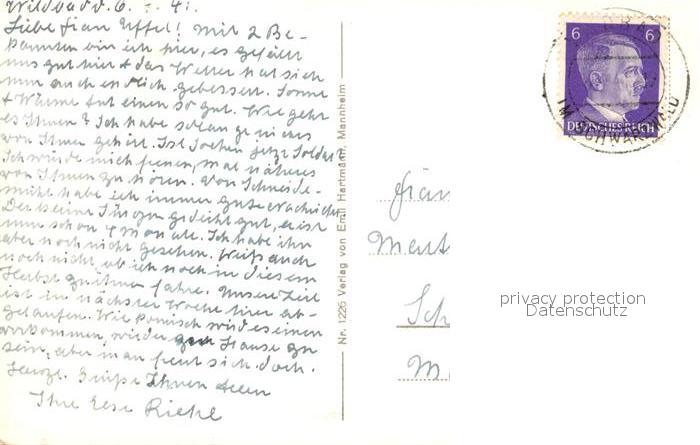 Wildbad d. 6. 41.
Liebe Frau Uffel! Mit 2 Be-
kannten bin ich hier, es gefällt
uns gut hier + das Wetter hat sich
nun auch endlich gebessert. Sonne
+ Wärme tut einem so gut. Wie geht
es Ihnen? Ich habe so lange nichts
von Ihnen gehört. Ist Jochen jetzt Soldat?
Ich würde mich freuen, mal näheres
von Ihnen zu hören. Von Schneide-
mühl habe ich immer gute Nachrichten
Der kleine Jürgen gedeiht gut, er ist
nun schon 4 Monate. Ich habe ihn
aber noch nicht gesehen. Weiß auch
noch nicht ob ich noch in diesem
Herbst zu ihnen fahre. Unsere Zeit
ist in nächster Woche hier ab-
gelaufen. Wie komisch wird es einem
vorkommen, wieder zu Hause zu
sein, aber man freut sich doch.
Herzl. Grüße Ihnen allen
Ihre Riehl
Nr. 1225 Verlag von Emil Hartmann, Mannheim
6 6
DEUTSCHES REICH
IM SCHWARZWALD
Frau
Sch
M
privacy protection
Datenschutz